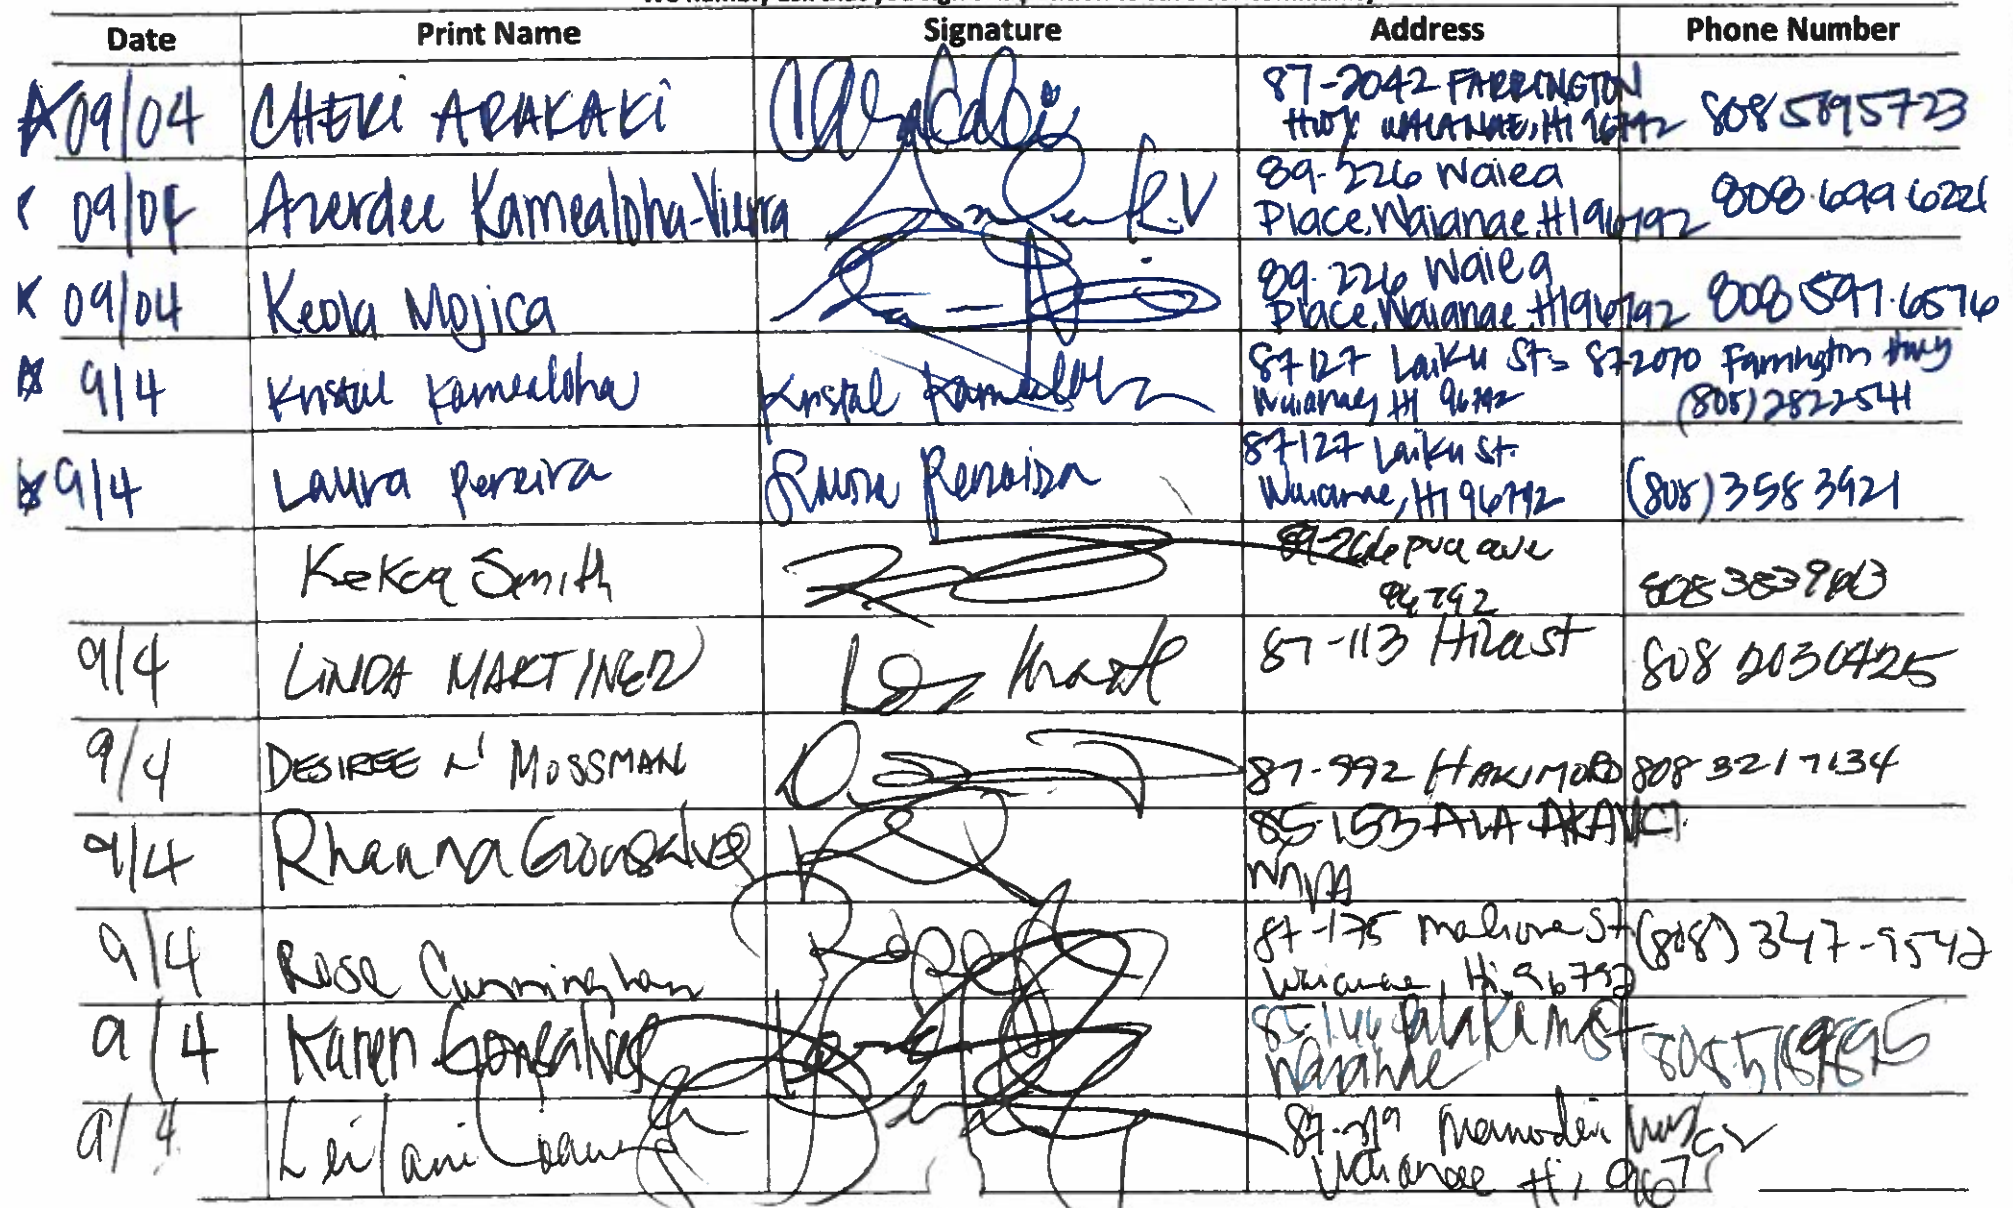 Date Print Name Signature Address Phone Number
09/04 CHERI ARAKAKI 87-2042 FARRINGTON
HWY WAIANAE, HI 96792 808 5895723
09/04 Azerdee Kamealoha-Vierra K.V 89-226 Waiea
Place, Waianae, HI 96792 808.699.6221
09/04 Keola Mojica 89-226 Waiea
Place, Waianae, HI 96792 808 597.6576
9/4 Kristal Kamealoha Kristal Kamealoha 87127 Laiku St 872070 Farrington Hwy
Waianae, HI 96792 (808) 2822541
9/4 Laura Pereira Laura Pereira 87127 Laiku St.
Waianae, HI 96792 (808) 358 3921
Kekoa Smith 89-266 pua ave
96792
9/4 LINDA MARTINEZ 87-113 Hila St 808 2030425
9/4 DESIREE N MOSSMAN 87-992 HAKIMO RD 808 321 7134
9/4 Rhanna Gonsalves 85-153 ALA AKAU
9/4 Rose Cunningham 87-175 Maliona St (808) 347-9542
Waianae, Hi, 96792
9/4 Karen Gonsalves
Waianae
9/4 Leilani
Waianae Hi, 967